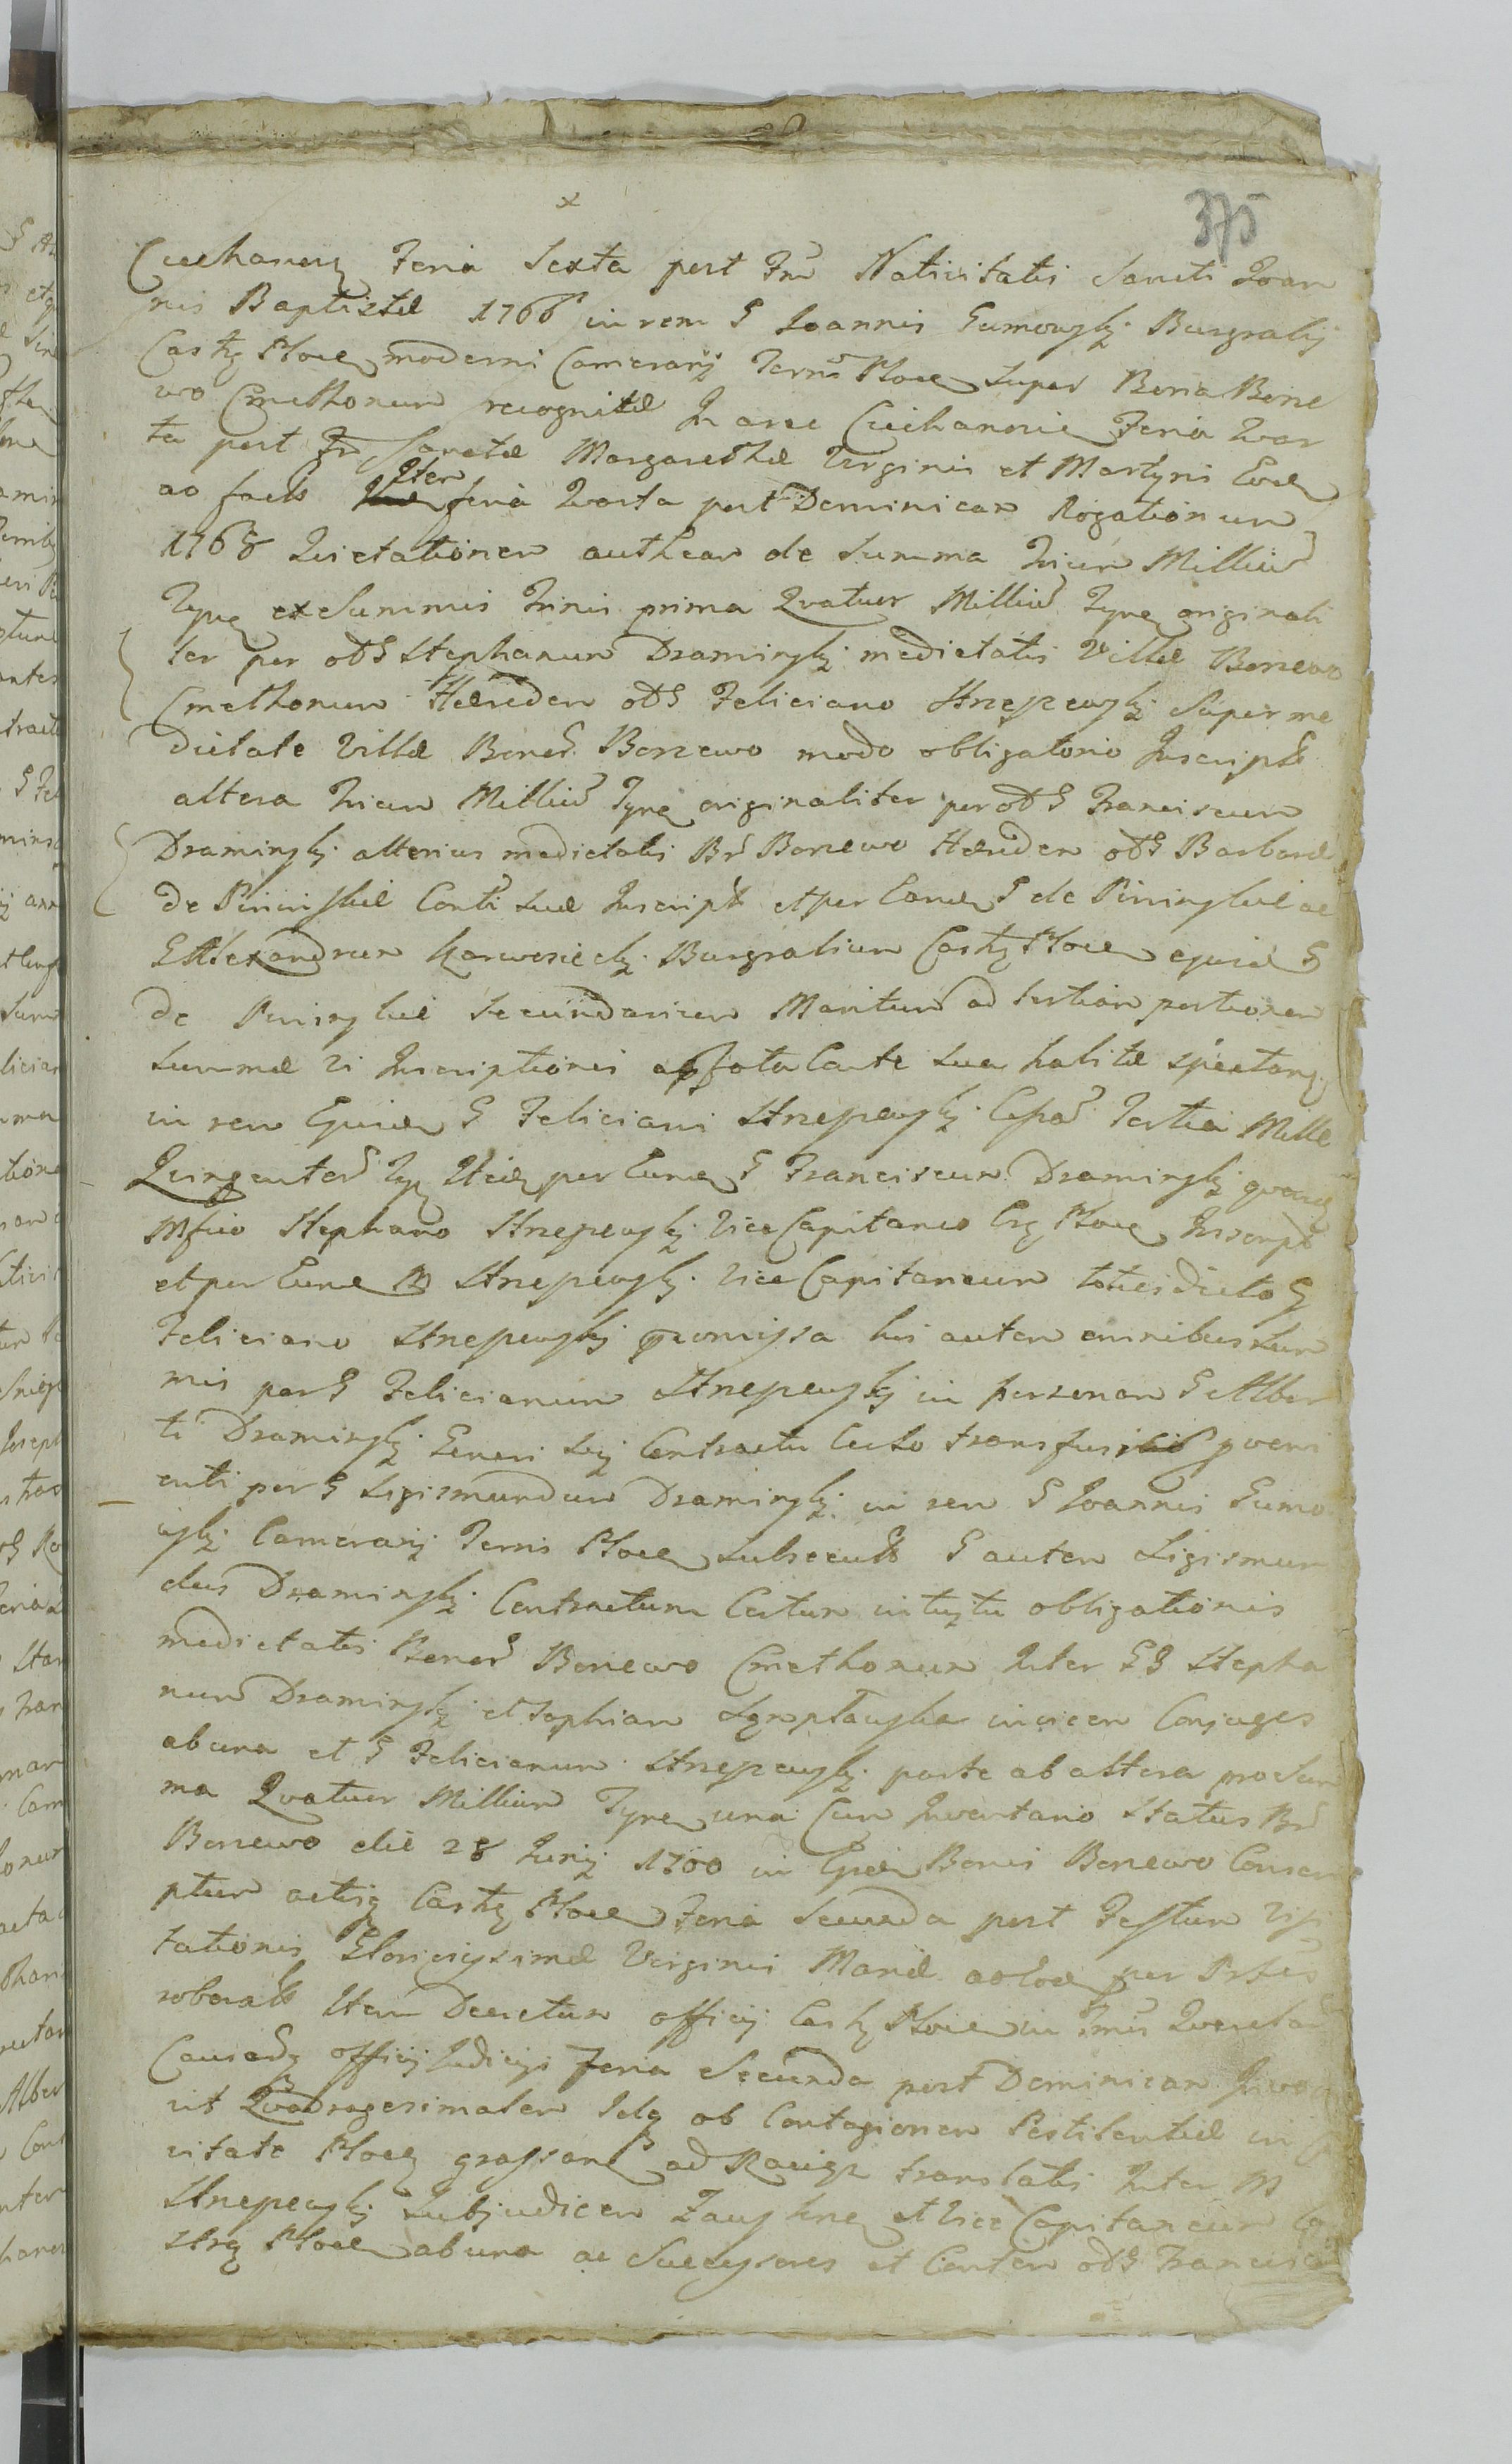 x
375
Ciechanov feria Sexta post Fm Nativitatis Sancti Joan
nis Baptistæ 1766 in rem G Joannis Gumowskj Burgrabij
Castr Ploce moderni Camerarij Terris Ploce Super Bona Bone
wo Cmethonum recognitæ In arce Ciechanovie Feria Quar
ta post Fm Sanctæ Margarethæ Virginis et Martyris Eod
ao facto Item feria Quarta post Dominicam Rogationum
1768 Quietationem authcam de Summa Trium Milliu
Typ ex Summis Trinis prima Quatuor Milliu Typ originali
ter per odG Stephanum Dramiңskj medietatis Villæ Bonewo
Cmethonum Hæredem odG Feliciano Strzeszewskj Super me
dietate Villæ Bonor Bonewo modo obligatorio Inscripta
altera Trium Milliu Typ originaliter per odG Franciscum
Dramiңskj alterius medietatis Br Bonewo Hæredem odG Barbaræ
de Pininskie Conti suæ Inscripta et per Eand G de Pininskie ac
G Alexandrum Karwosieckj Burgrabium Castr Ploce ejusd G
de Pininskie Secundarium Maritum ad tertiam portionem
Summæ vi Inscriptionis a Conte sua habitæ spectan
in rem Ejusd G Feliciani Strzeszewskj Tertia Mille
Quingentor Typ Itid per Eund G Franciscum Dramiңskj
Mfico Stephano Strzeszewskj ViceCapitaneo Ploce Inscripta
et per Eund M Strzeszewskj ViceCapitaneum toties dicto G
Feliciano Strzeszewskj promissa his autem omnibus Sum
mis per G Felicianum Strzeszewskj in personam G Alber
ti Dramiңskj Generi sui Contractu Certo transfusis
per G Sigismundum Dramiңskj in rem G Joannis Gumo
wskj Camerarij Terris Ploce Subsecuta G autem Sigismun
dus Dramiңskj Contractum Certum intuitu obligationis
medietatis Bonor Bonewo Cmethonum Inter GG Stepha
num Dramiңskj et Sophiam invicem Conjuges
ab una et G Felicianum Strzeszewskj parte ab altera pro Sum
ma Quatuor Millium Typ una Cum Inventario Status Br
Bonewo die 28 Junij 1700 in Bonis Bonewo Conscri
ptum actisq Castr Ploce Feria Secunda post Festum Visi
tationis Gloriosissimæ Virginis Mariæ ao eod per Partes
roborat Item Decretum officij Castr Ploce in Tmis Querelar
Causarq officij Judicijs Feria Secunda post Dominicam Invoca
vit Quadragesimalem Idq ob Contagionem Pestilentiæ in Ci
vitate Ploce grassan ad Raciąz translatis Inter M
Strzeszewskj Subjudicem Zawskrne et ViceCapitaneum Ca
strq Ploce ab una ac Successores et Contem odG Francisci